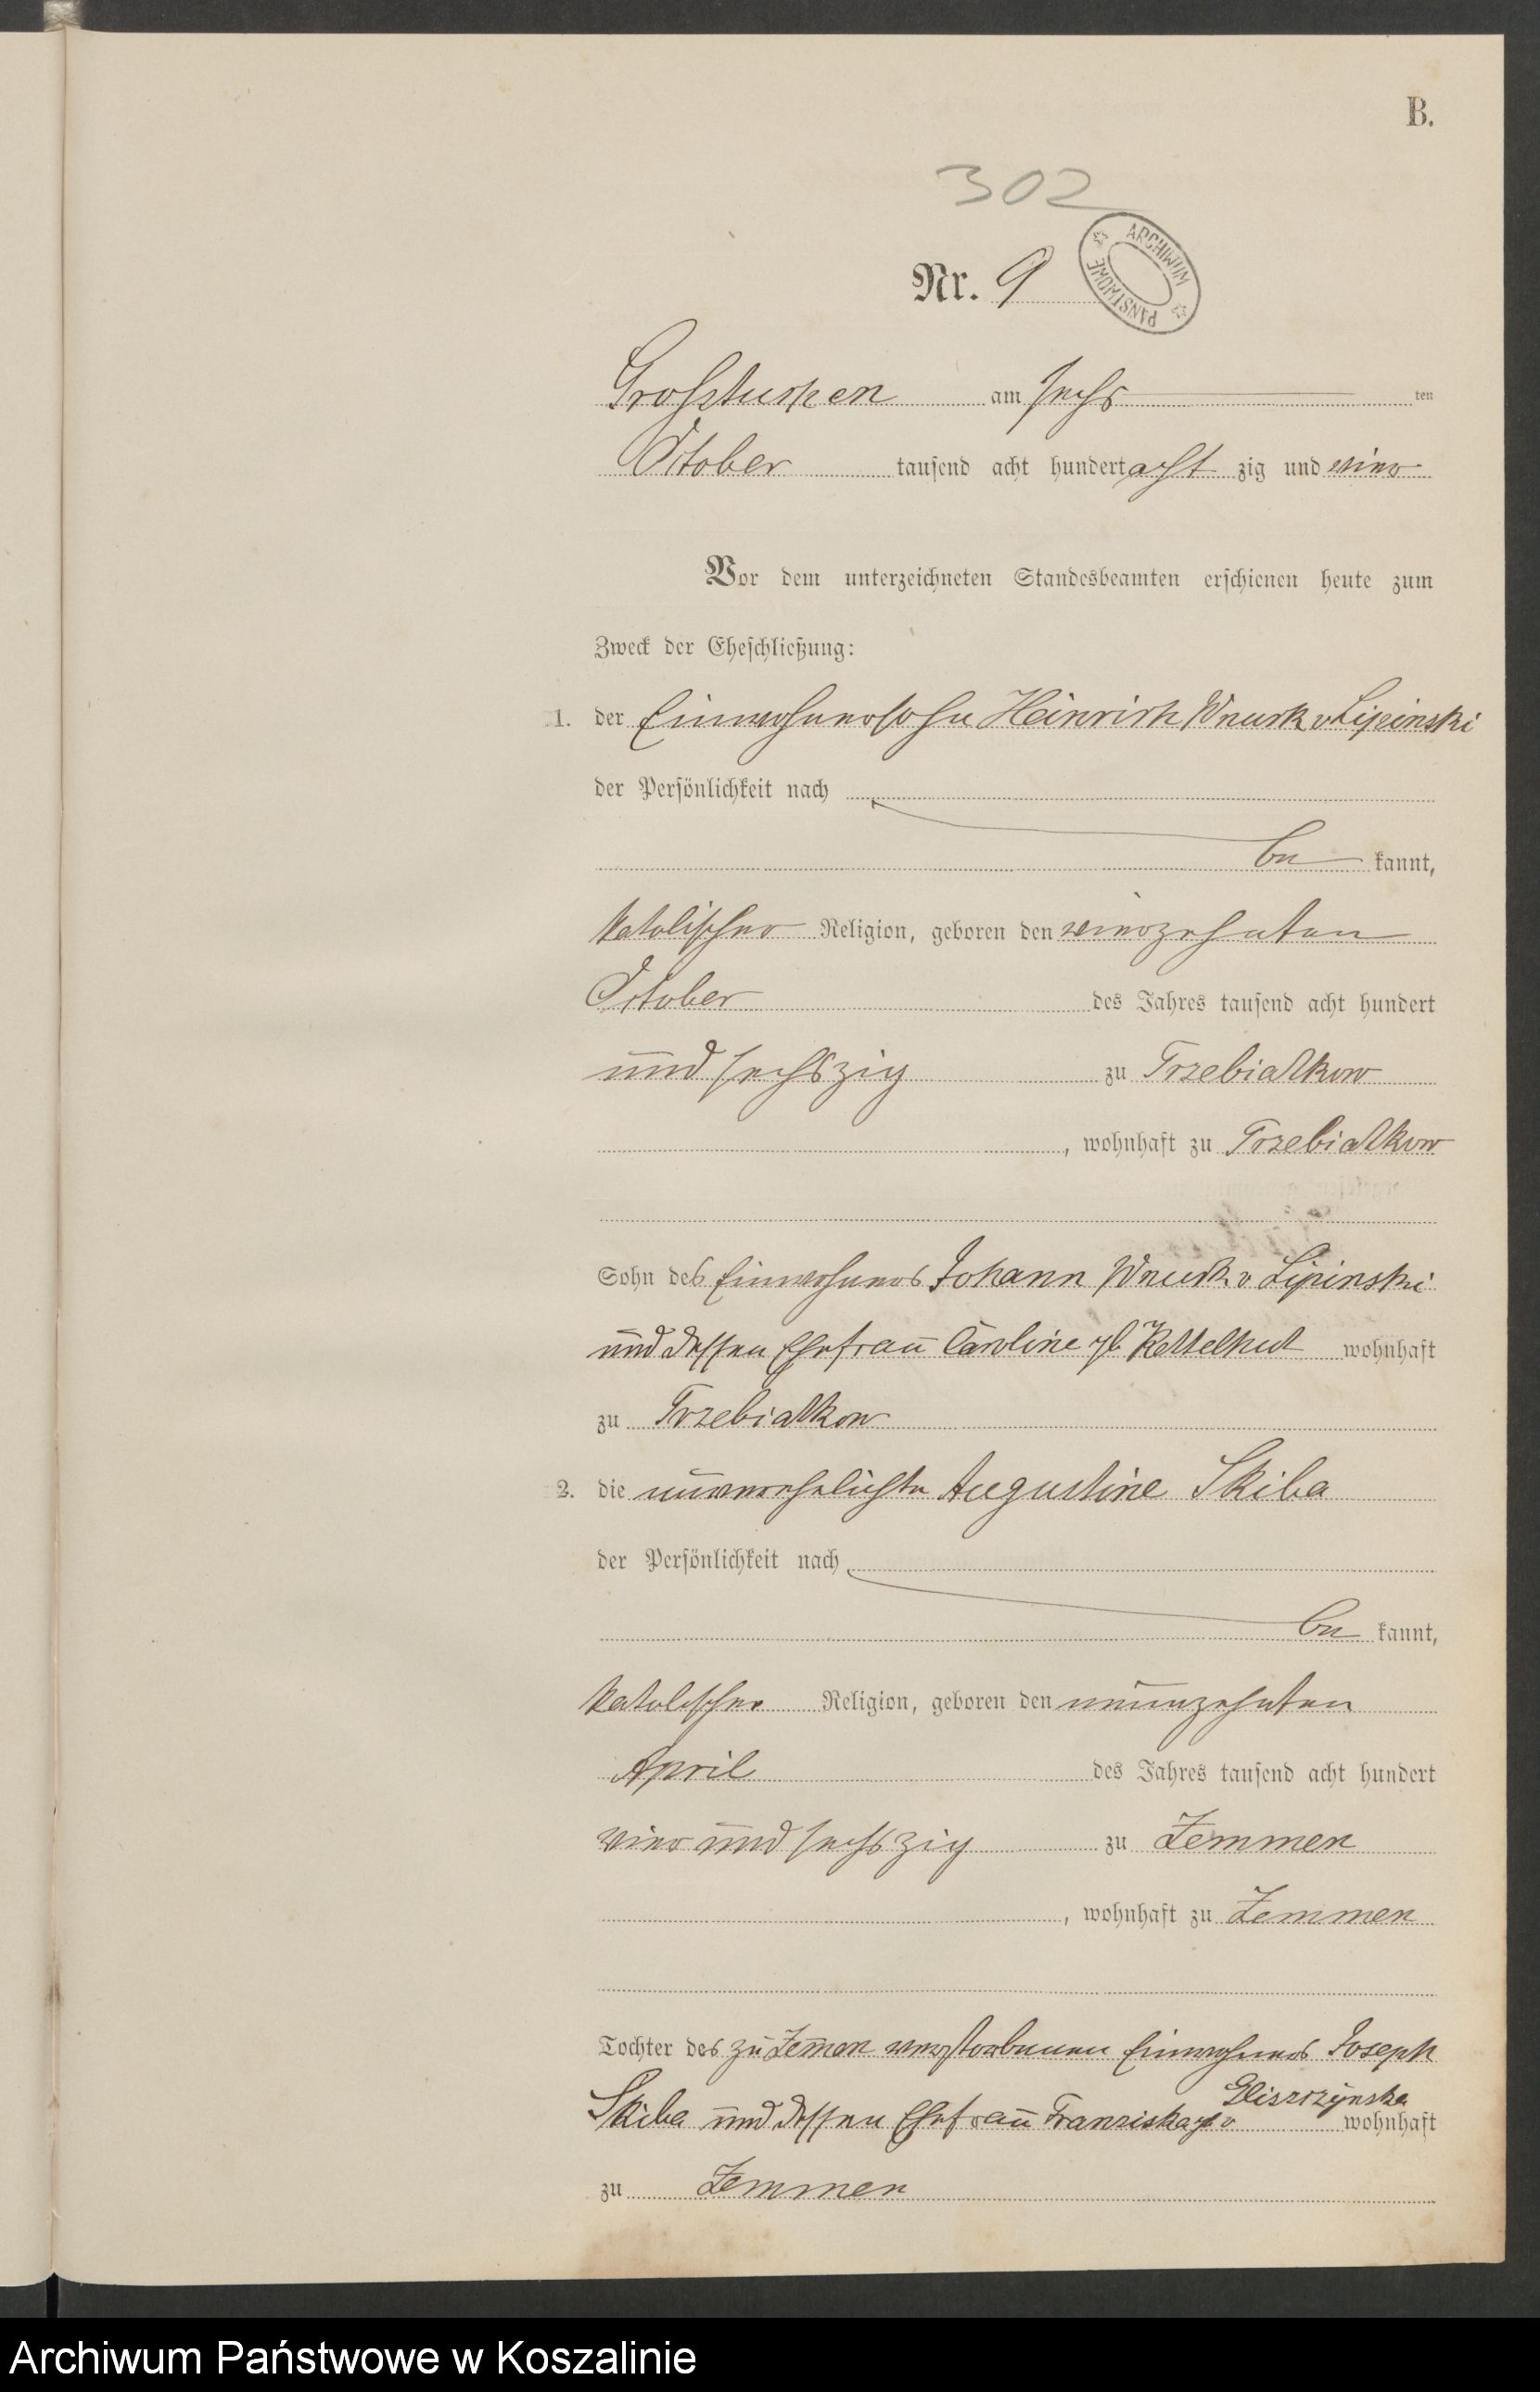 B.
302
Nr. 9
ARCHIWUM PAŃSTWOWE
Großtuchen am sechs ten
October tausend acht hundert acht zig und vier
Vor dem unterzeichneten Standesbeamten erschienen heute zum
Zweck der Eheschließung:
1. der Einwohnersohn Heinrich Wnuck v Lipinski
der Persönlichkeit nach
be kannt,
katolischer Religion, geboren den vierzehnten
October des Jahres tausend acht hundert
und sechszig zu Trzebiatkow
, wohnhaft zu Trzebiatkow
Sohn des Einwohners Johann Wnuck v Lipinski
und dessen Ehefrau Caroline gb Kettelhut wohnhaft
zu Trzebiatkow
2. die unverehelichte Augustine Skiba
der Persönlichkeit nach
be kannt,
katolischer Religion, geboren den neunzehnten
April des Jahres tausend acht hundert
vier und sechszig zu Zemmen
, wohnhaft zu Zemmen
Tochter des zu Zem̄en verstorbenen Einwohners Joseph
Skiba und dessen Ehefrau Franziska gb v Gliszczynska wohnhaft
zu Zemmen
Archiwum Państwowe w Koszalinie